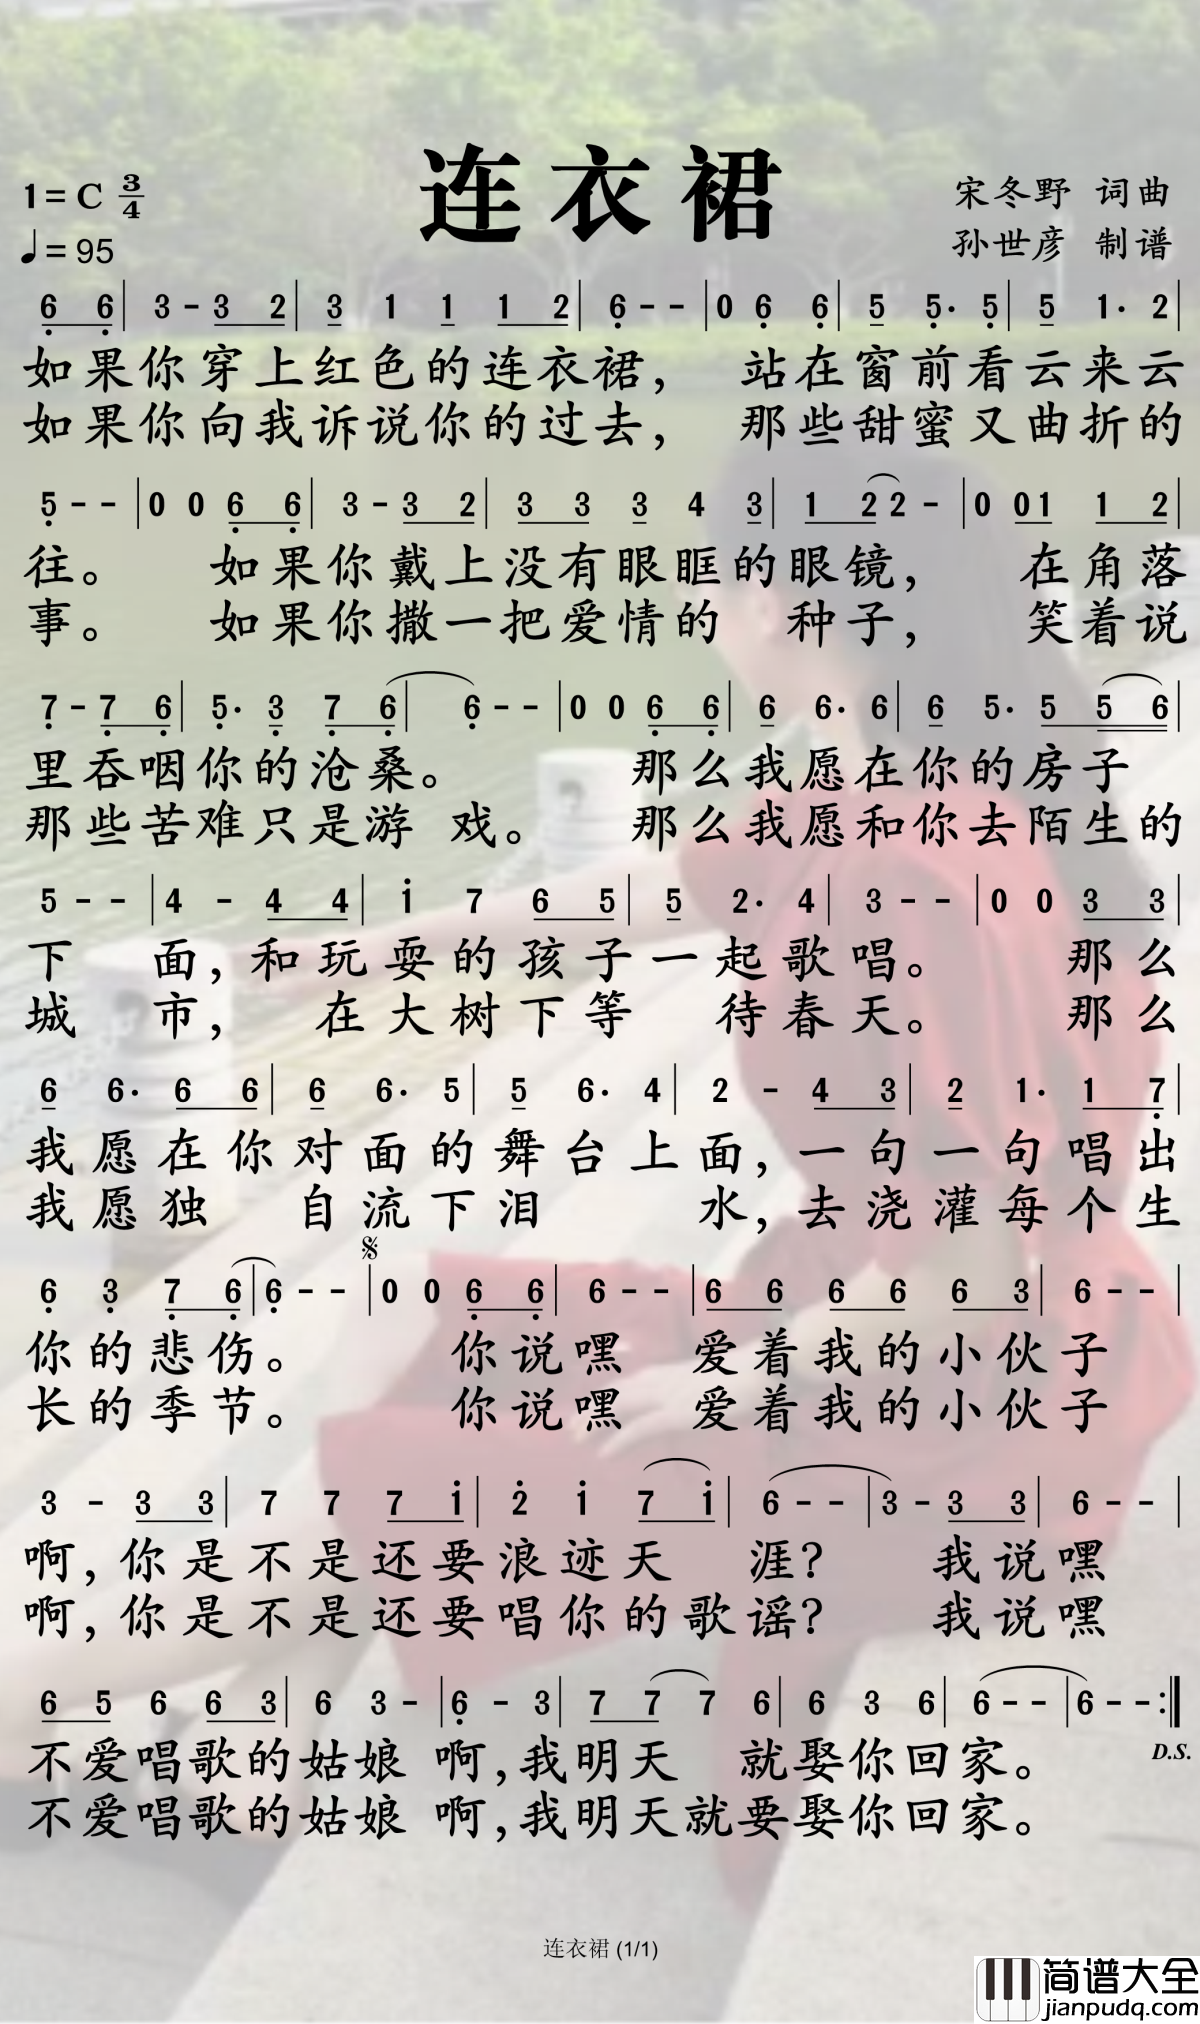 连衣裙
1=C 3/4
宋冬野 词曲
♩=95
孙世彦 制谱
6̣ 6̣ | 3 - 3 2 | 3 1 1 1 2 | 6̣ - - | 0 6̣ 6̣ | 5 5̣· 5̣ | 5 1· 2 |
如果你穿上红色的连衣裙， 站在窗前看云来云
如果你向我诉说你的过去， 那些甜蜜又曲折的
5̣ - - | 0 0 6̣ 6̣ | 3 - 3 2 | 3 3 3 4 3 | 1 2 2 - | 0 0 1 1 2 |
往。 如果你戴上没有眼眶的眼镜， 在角落
事。 如果你撒一把爱情的 种子， 笑着说
7̣ - 7̣ 6̣ | 5̣· 3̣ 7̣ 6̣ | 6̣ - - | 0 0 6̣ 6̣ | 6 6· 6 | 6 5· 5 5 6 |
里吞咽你的沧桑。 那么我愿在你的房子
那些苦难只是游 戏。 那么我愿和你去陌生的
5 - - | 4 - 4 4 | 1̇ 7 6 5 | 5 2· 4 | 3 - - | 0 0 3 3 |
下 面，和玩耍的孩子一起歌唱。 那么
城 市， 在大树下等 待春天。 那么
6 6· 6 6 | 6 6· 5 | 5 6· 4 | 2 - 4 3 | 2 1· 1 7̣ |
我愿在你对面的舞台上面，一句一句唱出
我愿独 自流下泪 水，去浇灌每个生
6̣ 3̣ 7̣ 6̣ | 6̣ - - | 0 0 6̣ 6̣ | 6 - - | 6 6 6 6 6 3 | 6 - - |
你的悲伤。 你说嘿 爱着我的小伙子
长的季节。 你说嘿 爱着我的小伙子
3 - 3 3 | 7 7 7 1̇ | 2̇ 1̇ 7 1̇ | 6 - - | 3 - 3 3 | 6 - - |
啊，你是不是还要浪迹天 涯？ 我说嘿
啊，你是不是还要唱你的歌谣？ 我说嘿
6 5 6 6 3 | 6 3 - | 6̣ - 3 | 7 7 7 6 | 6 3 6 | 6 - - | 6 - - :|
D.S.
不爱唱歌的姑娘 啊，我明天 就娶你回家。
不爱唱歌的姑娘 啊，我明天就要娶你回家。
连衣裙 (1/1)
简谱大全
jianpudq.com